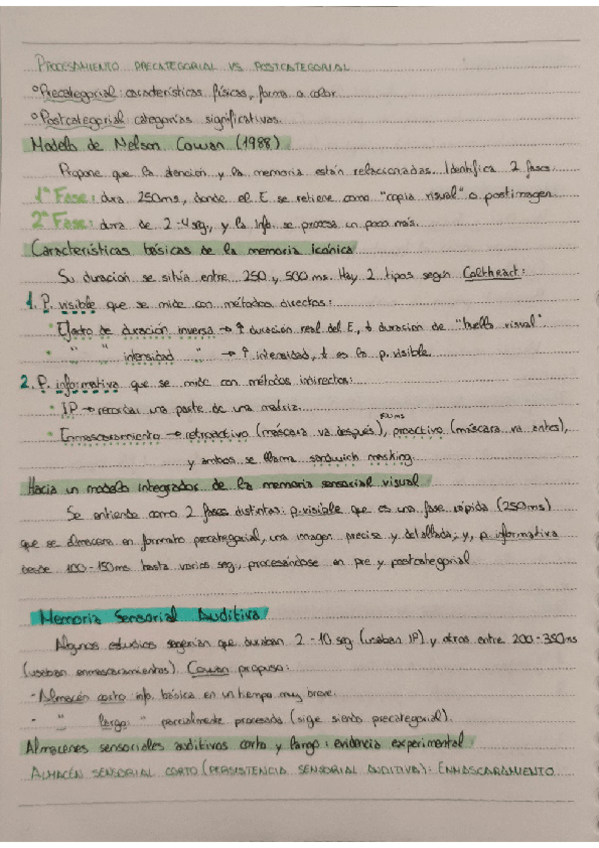 PROCESAMIENTO PRECATEGORIAL VS POSTCATEGORIAL
° Precategorial: características físicas, forma o color
° Postcategorial: categorías significativas.
Modelo de Nelson Cowan (1988)
Propone que la atención y la memoria están relacionadas. Identifica 2 fases:
1ª Fase: dura 250ms, donde el E se retiene como "copia visual" o postimagen.
2ª Fase: dura de 2-4 seg, y la info. se procesa un poco más.
Características básicas de la memoria icónica
Su duración se sitúa entre 250 y 500 ms. Hay 2 tipos según Coltheart:
1. P. visible que se mide con métodos directos:
• Efecto de duración inversa → ↑ duración real del E, ↓ duración de "huella visual"
• " " intensidad " → ↑ intensidad, ↓ es la p. visible.
2. P. informativa que se mide con métodos indirectos:
• IP → recordar una parte de una matriz.
• Enmascaramiento → retroactivo (máscara va después), proactivo (máscara va antes),
y ambos se llama sandwich masking.
Hacia un modelo integrador de la memoria sensorial visual
Se entiende como 2 fases distintas: p. visible que es una fase rápida (250ms)
que se almacena en formato precategorial, una imagen precisa y detallada; y, p informativa
desde 100-150ms hasta varios seg, procesándose en pre y postcategorial
Memoria Sensorial Auditiva
Algunos estudios sugerían que duraban 2-10 seg (usaban IP) y otros entre 200-350ms
(usaban enmascaramientos). Cowan propuso:
- Almacén corto info. básica en un tiempo muy breve.
- " largo: " parcialmente procesada (sige siendo precategorial).
Almacenes sensoriales auditivos corto y largo: evidencia experimental
ALMACÉN SENSORIAL CORTO (PERSISTENCIA SENSORIAL AUDITIVA): ENMASCARAMIENTO